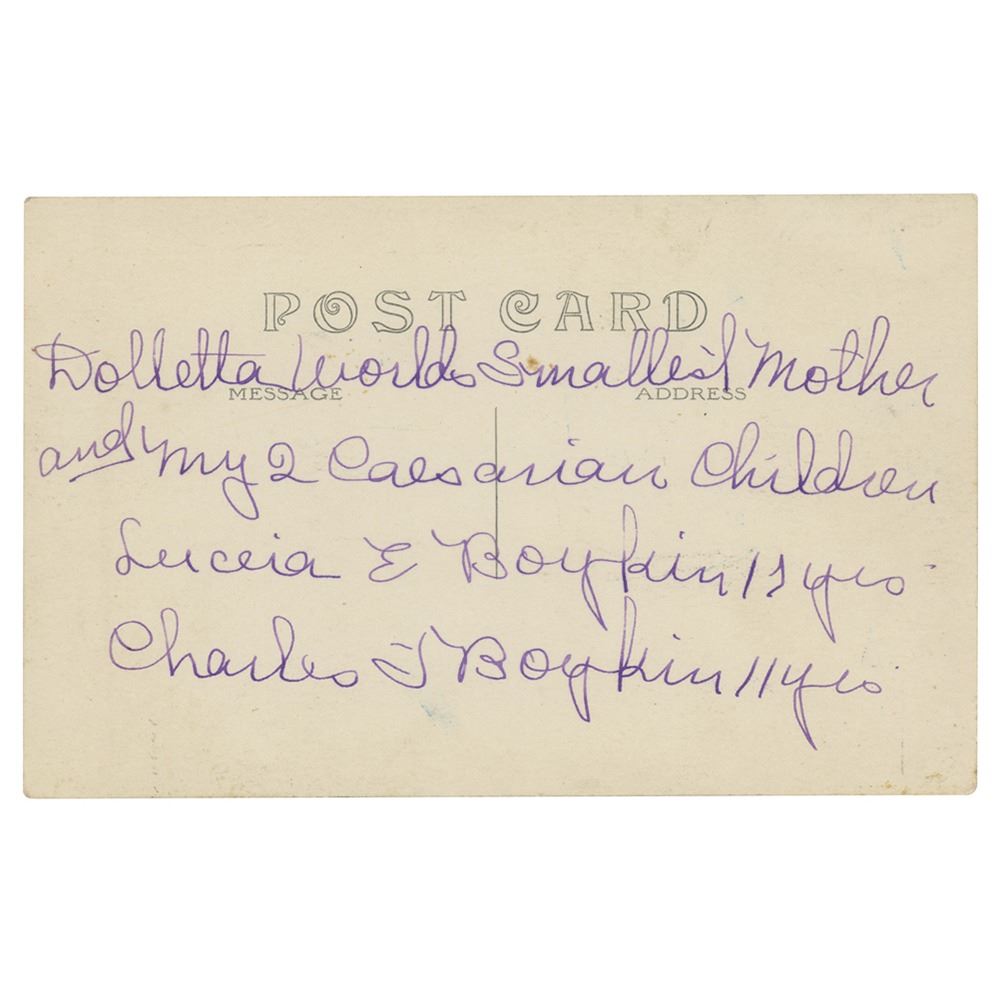 POST CARD
Dolletta Worlds Smallest Mother
MESSAGE ADDRESS
and my 2 Caesarian Children
Luceia E Boykin yrs
Charles Boykin 11 yrs